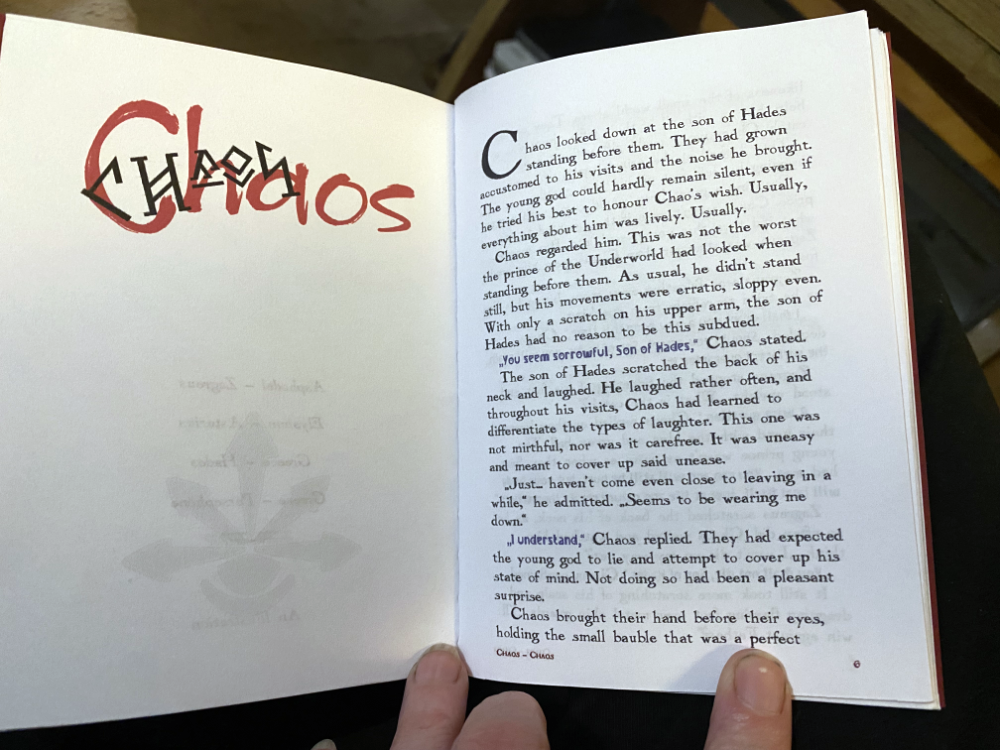 Chaos
CHAOS
Chaos looked down at the son of Hades
standing before them. They had grown
accustomed to his visits and the noise he brought.
The young god could hardly remain silent, even if
he tried his best to honour Chao's wish. Usually,
everything about him was lively. Usually.
Chaos regarded him. This was not the worst
the prince of the Underworld had looked when
standing before them. As usual, he didn't stand
still, but his movements were erratic, sloppy even.
With only a scratch on his upper arm, the son of
Hades had no reason to be this subdued.
„You seem sorrowful, Son of Hades,“ Chaos stated.
The son of Hades scratched the back of his
neck and laughed. He laughed rather often, and
throughout his visits, Chaos had learned to
differentiate the types of laughter. This one was
not mirthful, nor was it carefree. It was uneasy
and meant to cover up said unease.
„Just… haven't come even close to leaving in a
while,“ he admitted. „Seems to be wearing me
down.“
„I understand,“ Chaos replied. They had expected
the young god to lie and attempt to cover up his
state of mind. Not doing so had been a pleasant
surprise.
Chaos brought their hand before their eyes,
holding the small bauble that was a perfect
Chaos – Chaos
6